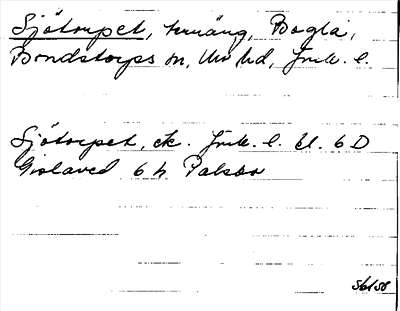 Sjötorpet, terräng, Bogla,
Bondstorps sn, Mo hd, Jmk. l.
Sjötorpet, ek. Jmk. l. bl. 6 D
Gislaved 6 h Palsbo